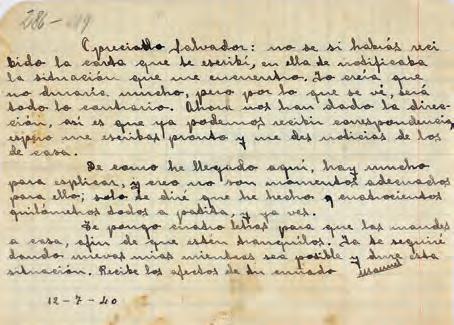 286-
Apreciado Salvador: no se si habrás reci
bido la carta que te escribí, en ella te notificaba
la situación que me encuentro. Yo creia que
no duraria mucho, pero por lo que se vé, será
todo lo contrario. Ahora nos han dado la direc-
ción, así es que ya podemos recibir correspondencia,
espero me escribas pronto y me des noticias de los
de casa.
De como he llegado aquí, hay mucho
para esplicar, y creo no son momentos adecuados
para ello; solo te diré que he hecho cuatrocientos
quilómetros todos a patita, y ya ves.
Te pongo cuatro letras para que las mandes
a casa, afin de que estén tranquilos. Ya te seguiré
dando nuevas mias mientras sea posible y dure esta
situación. Recibe los afectos de tu cuñado
12-7-40